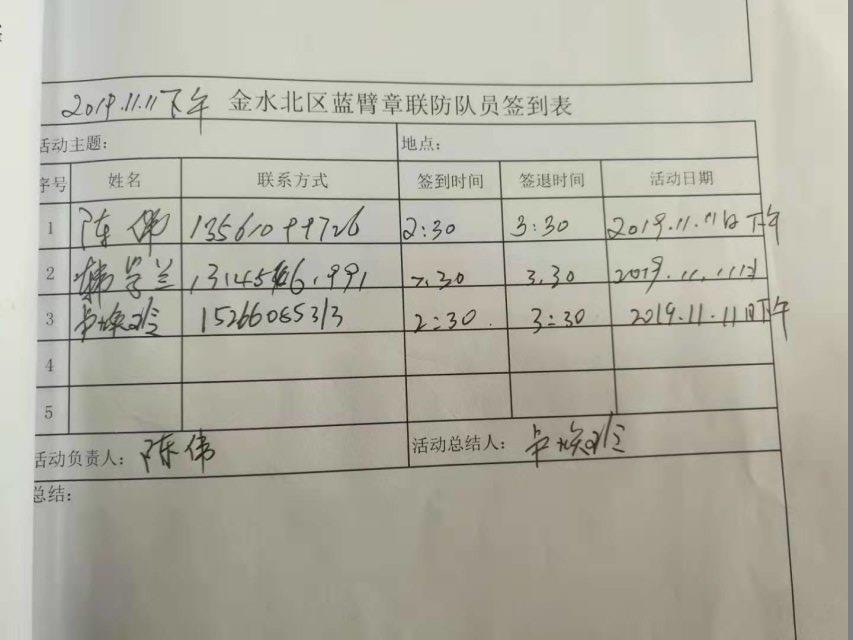 2019.11.11下午 金水北区蓝臂章联防队员签到表
活动主题: 地点:
序号 姓名 联系方式 签到时间 签退时间 活动日期
1 陈伟 13561099726 2:30 3:30 2019.11.11日下午
2 学兰 2.30 3.30 2019.11.11日
3 15266085313 2:30 3:30 2019.11.11日下午
4
5
活动负责人: 陈伟 活动总结人:
总结: